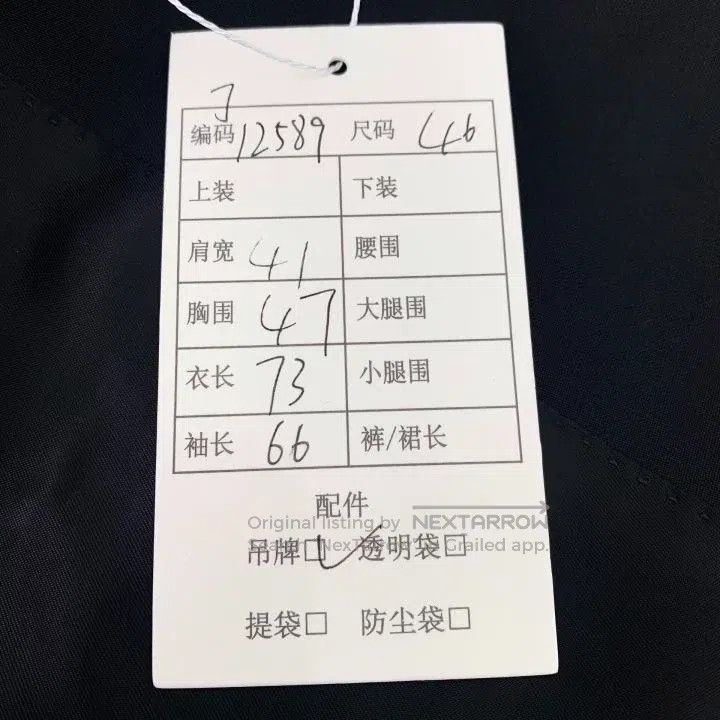 编码 12589 尺码 46
上装 下装
肩宽 41 腰围
胸围 47 大腿围
衣长 73 小腿围
袖长 66 裤/裙长
配件
Original listing by NEXTARROW
Grailed app.
吊牌☑ 透明袋□
提袋□ 防尘袋□